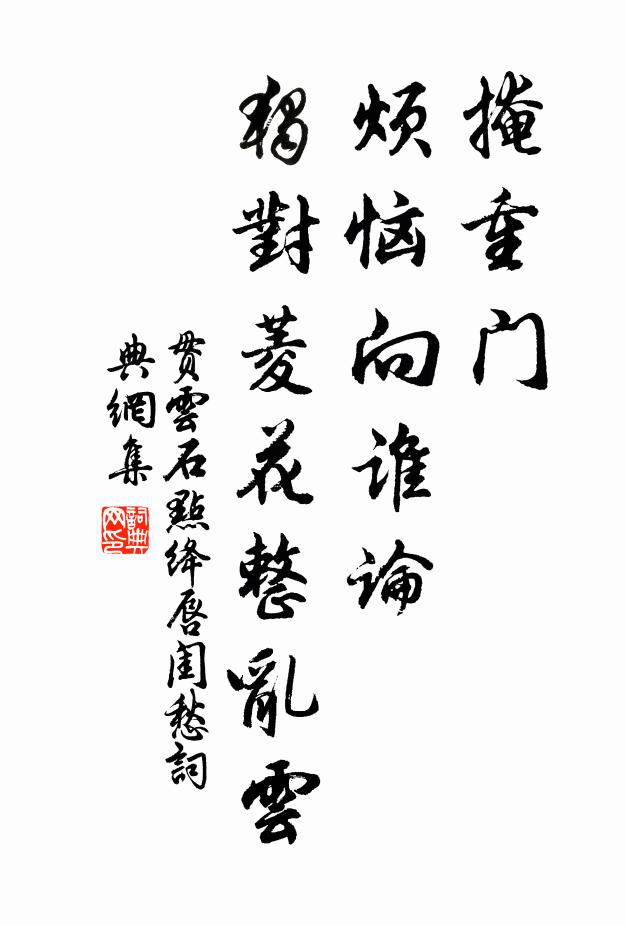 掩重门
烦恼向谁论
獨對菱花整亂雲
贯雲石點绛唇闺愁詞
典網集
詞典
网印